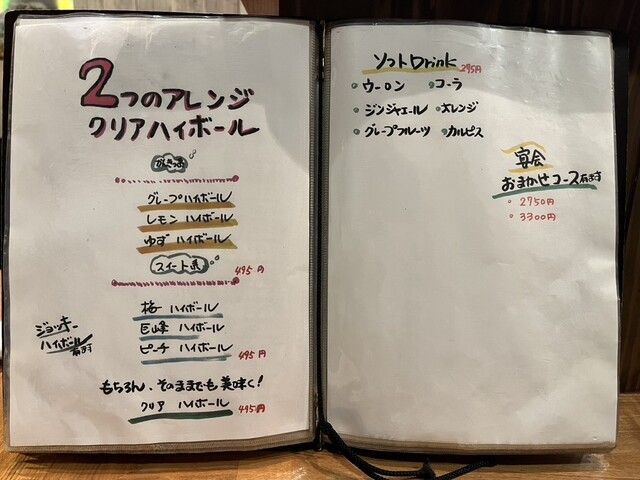 2つのアレンジ
クリアハイボール
かんきつ系
グレープハイボール
レモン ハイボール
ゆず ハイボール
スイート系
495円
梅 ハイボール
巨峰 ハイボール
ピーチ ハイボール 495円
ジョッキー
ハイボール
有ます
もちろん、そのままでも美味く!
クリア ハイボール 495円
ソフトDrink 295円
ウーロン コーラ
ジンジャエール オレンジ
グレープフルーツ カルピス
宴会
おまかせコース有ます
2750円
3300円